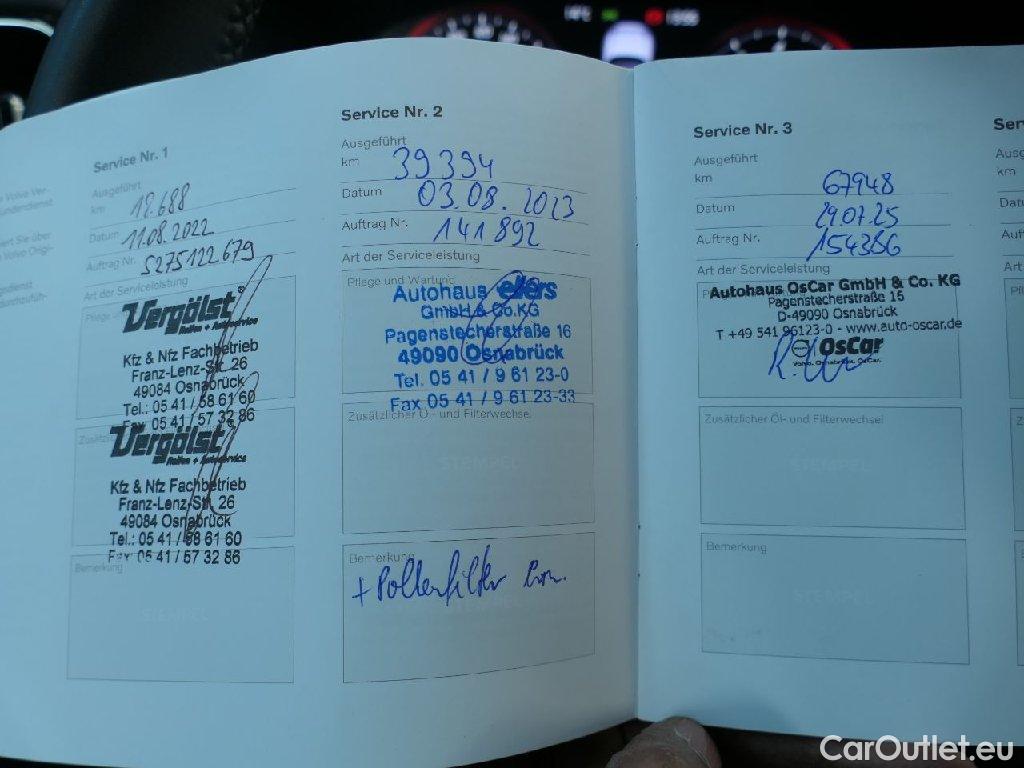 Service Nr. 1
Ausgeführt
km 12.688
Datum 11.08.2022
Auftrag Nr. 5275122679
Art der Serviceleistung
Vergölst
Reifen + Autoservice
Kfz & Nfz Fachbetrieb
Franz-Lenz-Str. 26
49084 Osnabrück
Tel.: 05 41 / 58 61 60
Fax 05 41 / 57 32 86
Vergölst
Reifen + Autoservice
Kfz & Nfz Fachbetrieb
Franz-Lenz-Str. 26
49084 Osnabrück
Tel.: 05 41 / 58 61 60
Fax 05 41 / 57 32 86
Bemerkung
STEMPEL
Service Nr. 2
Ausgeführt
km 39394
Datum 03.08.2023
Auftrag Nr. 141892
Art der Serviceleistung
Pflege und Wartung
Autohaus
GmbH & Co.KG
Pagenstecherstraße 16
49090 Osnabrück
Tel. 05 41 / 9 61 23-0
Fax 05 41 / 9 61 23-33
Zusätzlicher Öl- und Filterwechsel
STEMPEL
Bemerkung
+ Pollenfilter
STEMPEL
Service Nr. 3
Ausgeführt
km 67948
Datum 29.07.25
Auftrag Nr. 154386
Art der Serviceleistung
Autohaus OsCar GmbH & Co. KG
Pagenstecherstraße 15
D-49090 Osnabrück
T +49 541 96123-0 - www.auto-oscar.de
OsCar
Zusätzlicher Öl- und Filterwechsel
STEMPEL
Bemerkung
STEMPEL
CarOutlet.eu